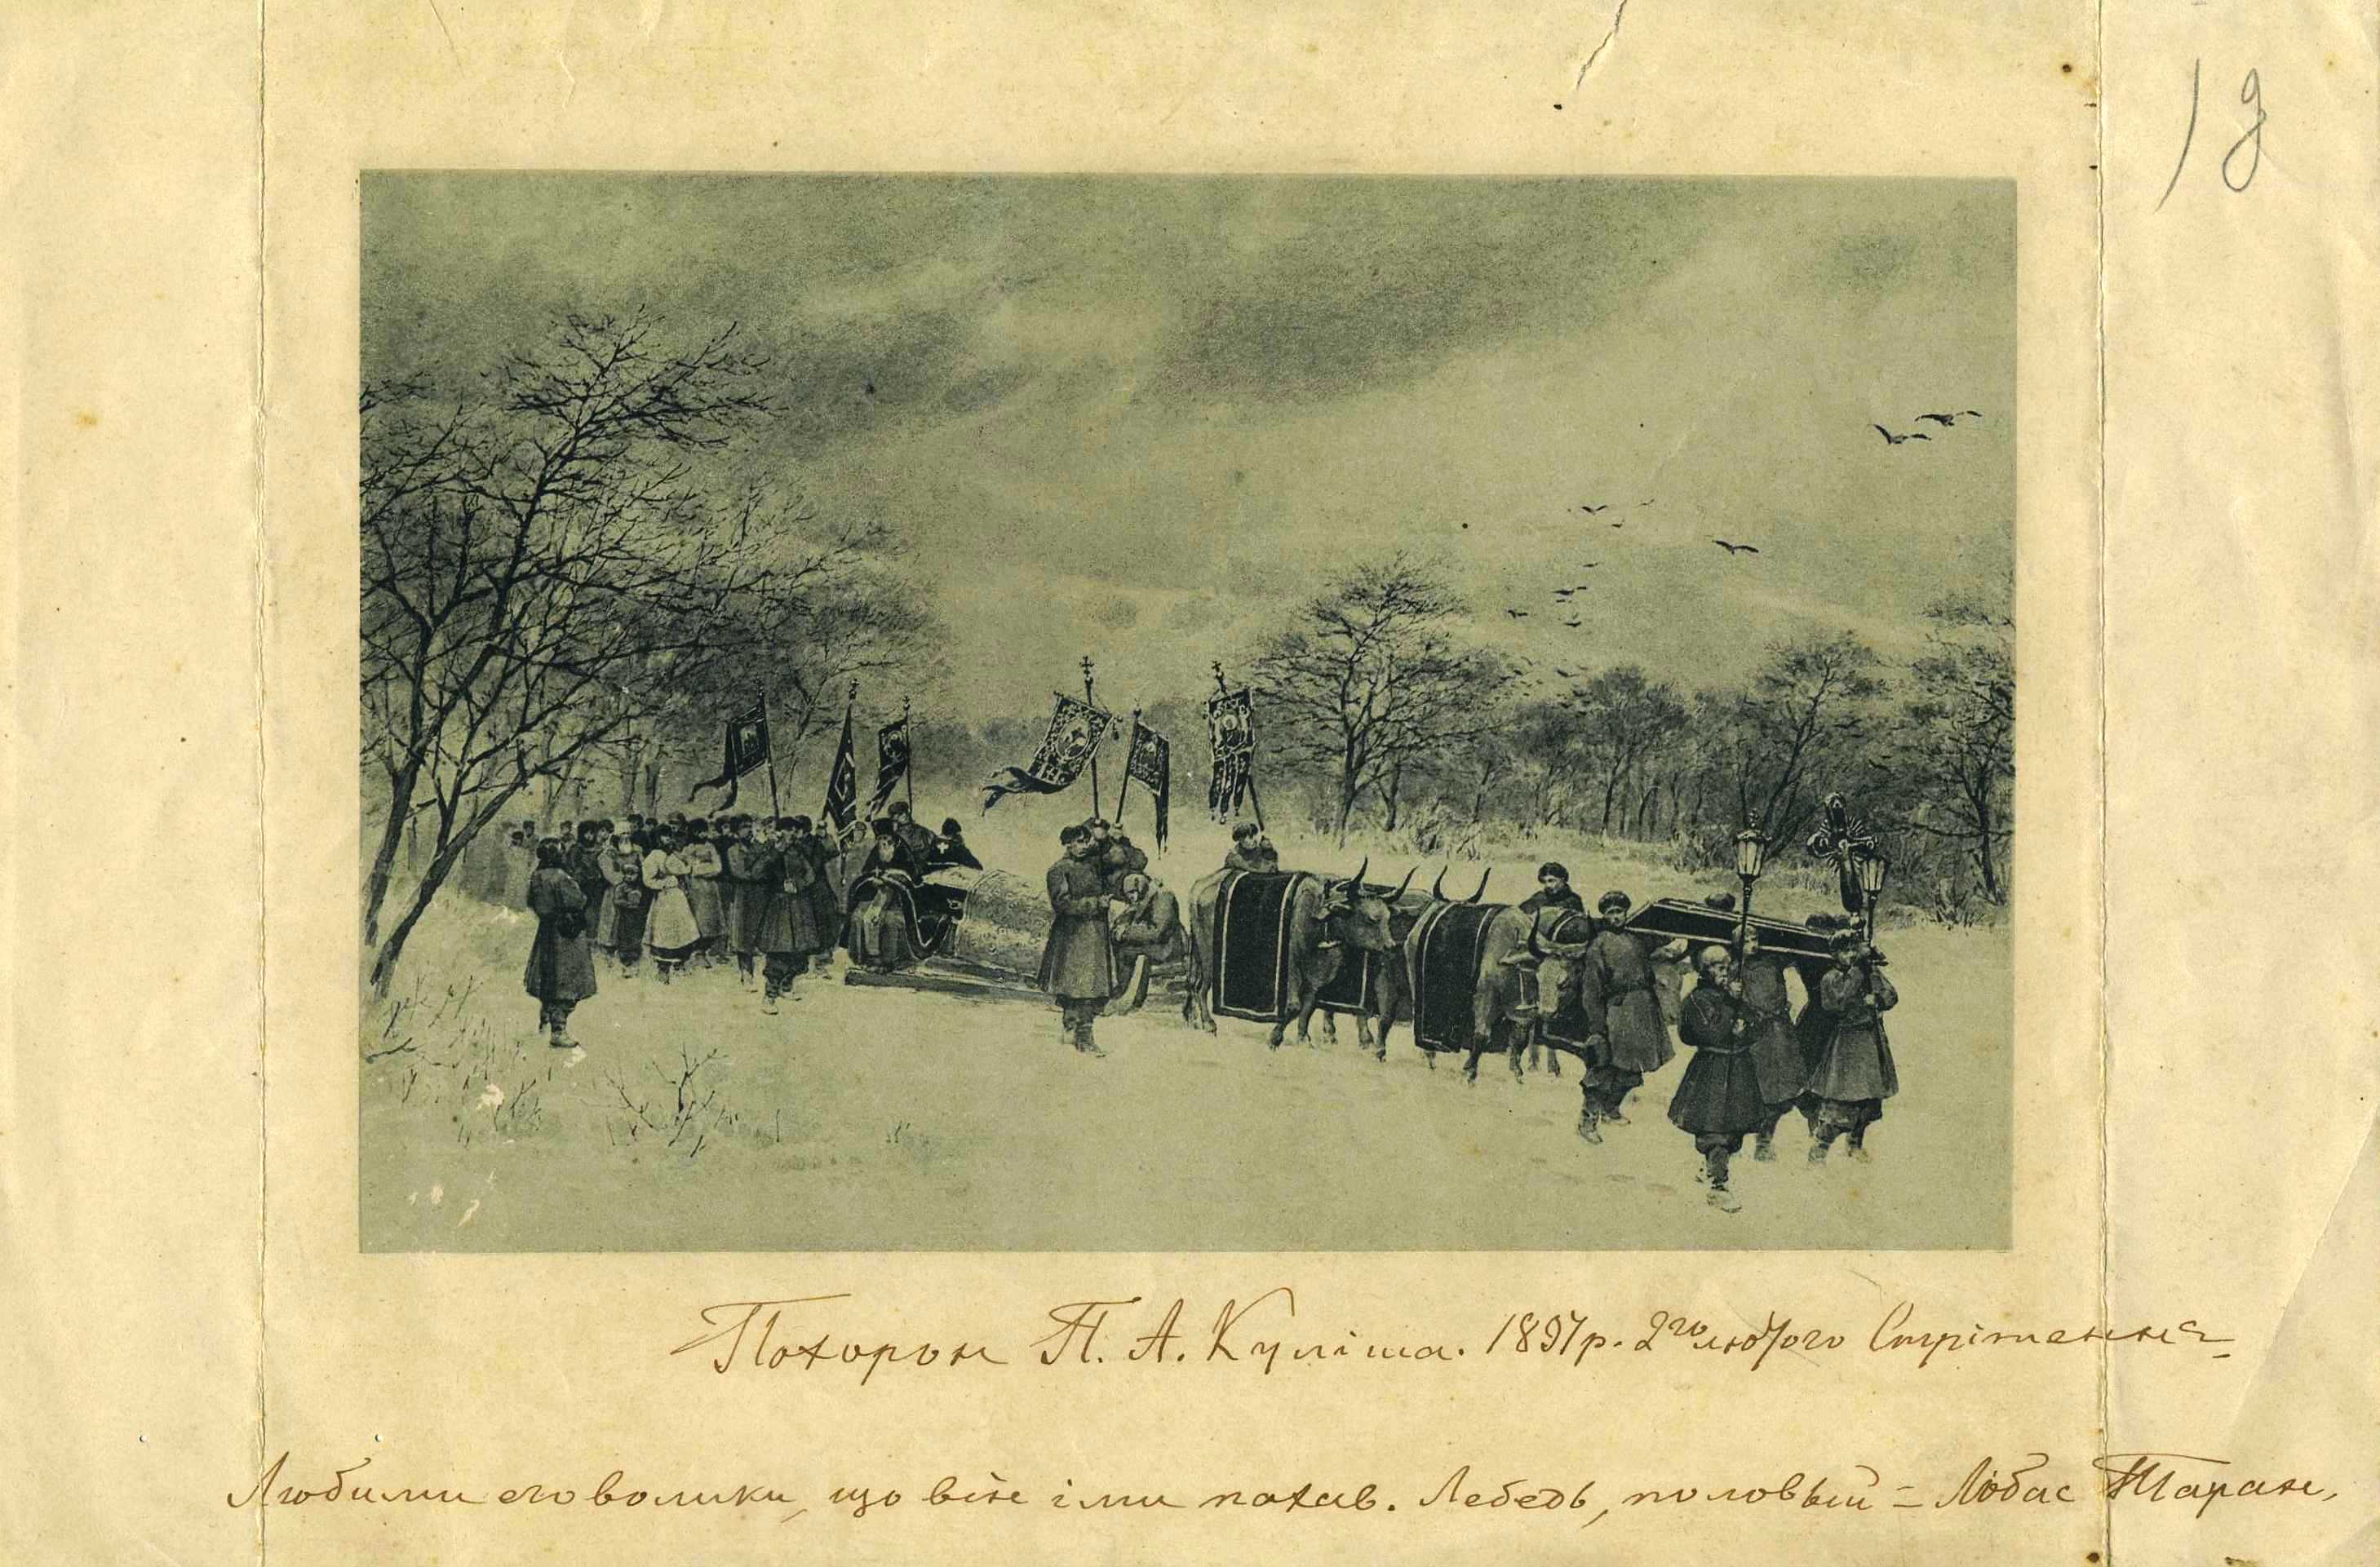 1 д
Похорон П. А. Куліша. 1897 р. 2го лютого Стрітення
Любими его волики, що він іми пахав. Лебедь, половый = Лобас Таран.